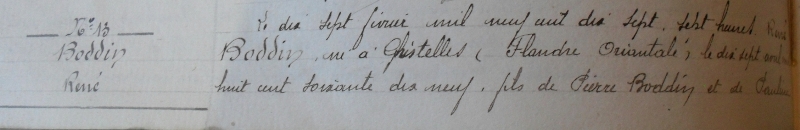 N° 13
Boddin
René
Le dix sept février mil neuf cent dix sept, sept heures, René
Boddin, né à Ghistelles (Flandre Orientale), le dix sept
huit cent soixante dix neuf, fils de Pierre Boddin et de Pauline